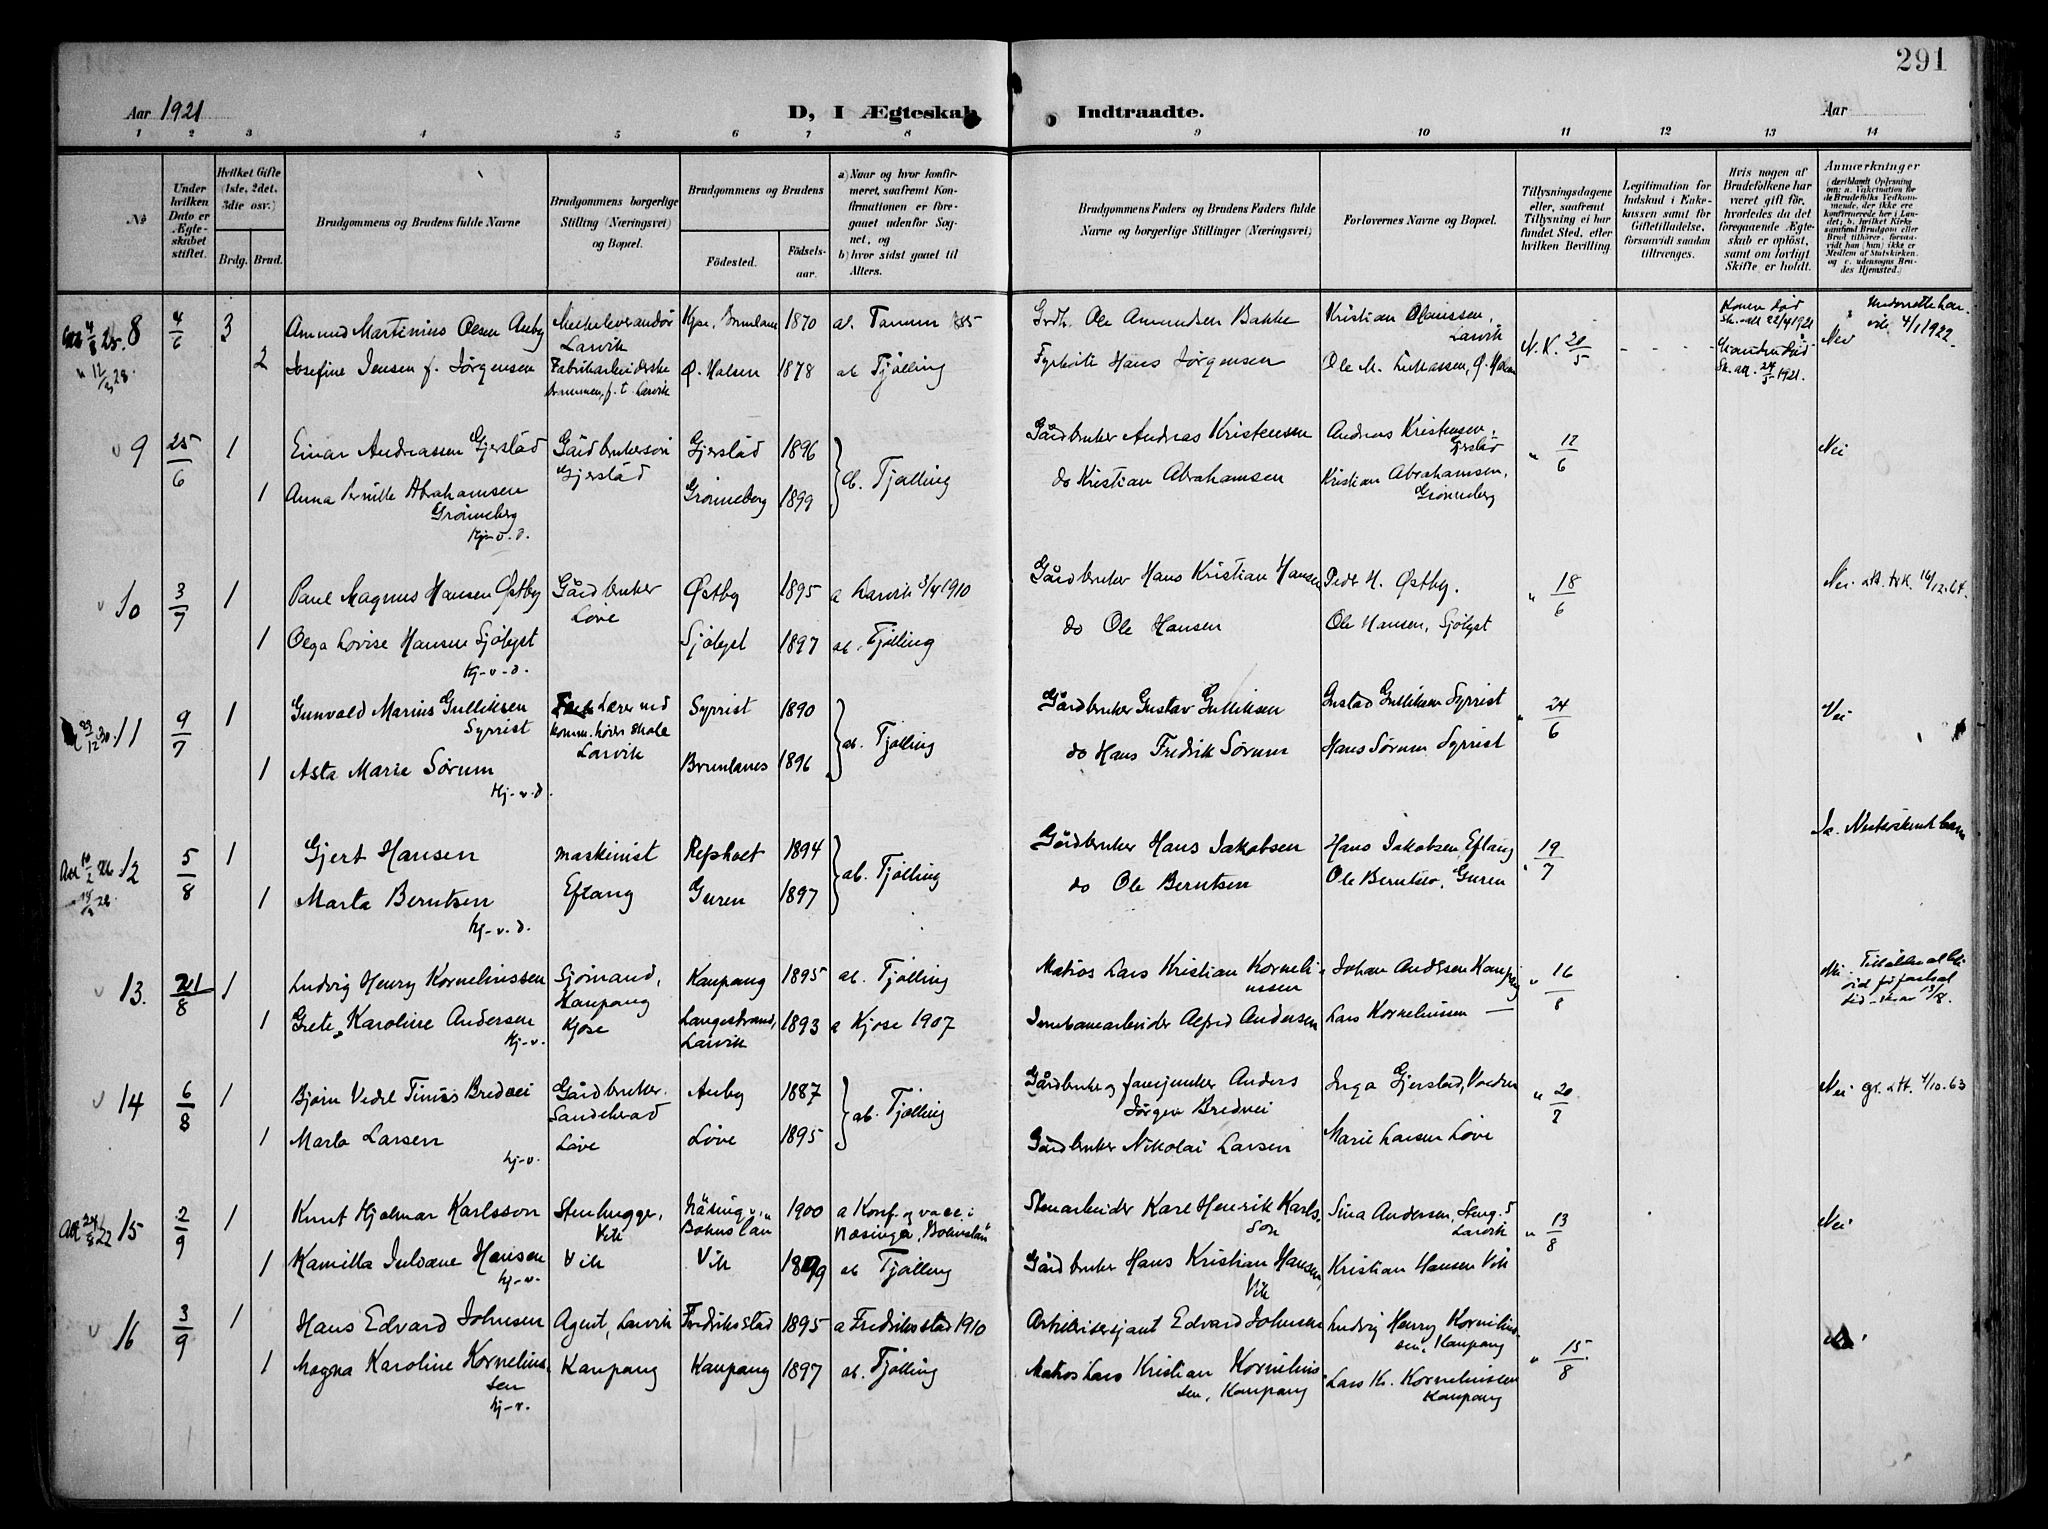 291
Aar 1921
D, I Ægteskab Indtraadte.
Aar
1 2 3 4 5 6 7 8 9 10 11 12 13 14
№
Under hvilken Dato er Ægteskabet stiftet.
Hvilket Gifte (1ste, 2det, 3die osv.)
Brdg. Brud.
Brudgommens og Brudens fulde Navne
Brudgommens borgerlige Stilling (Næringsvei) og Bopæl.
Brudgommens og Brudens
Födested. Födselsaar.
a) Naar og hvor konfirmeret, saafremt Konfirmationen er foregaaet udenfor Sognet, og
b) hvor sidst gaaet til Alters.
Brudgommens Faders og Brudens Faders fulde Navne og borgerlige Stillinger (Næringsvei)
Forlovernes Navne og Bopæl.
Tillysningsdagene eller, saafremt Tillysning ei har fundet Sted, efter hvilken Bevilling.
Legitimation for Indskud i Enkekassen samt for Giftetilladelse, forsaavidt saadan tiltrænges.
Hvis nogen af Brudefolkene har været gift før, hvorledes da det foregaaende Ægteskab er opløst, samt om lovligt Skifte er holdt.
Anmærkninger
8 4/6 3 Amund Martinius Olsen Auby
Larvik Kjose, Brunlanes 1870 ab. Tanum 885
Ole Amundsen Bakke
Kristian Olaussen, Larvik
N.K. 20/5 - - -
Konen død Sk. att 22/4 1921
Nei
4/1 1922.
2 Josefine Jensen f. Jørgensen
Fabrikarbeiderske
f. t. Larvik
Ø. Halsen 1878 ab Tjølling
Fyrbøte Hans Jørgensen
Manden död Sk. att. 24/5 1921.
9 25/6 1 Einar Andreassen Gjerstad
Gårdbrukersøn Gjerstad
Gjerstad 1896
ab. Tjølling
Gårdbruker Andreas Kristensen
Andreas Kristensen, Gjerstad
" 12/6
Nei
1 Anna Pernille Abrahamsen Grønneberg
Kj-v. d.
Grønneberg 1899
do Kristian Abrahamsen
Kristian Abrahamsen, Grønneberg
10 3/7 1 Paul Magnus Hansen Østby
Gårdbruker Løve
Østby 1895 a Larvik 3/4 1910
Gårdbruker Hans Kristian Hansen
Peder H. Østby.
" 18/6
Nei att. tvk. 16/12.64.
1 Olga Lovise Hansen Sjølyst
Kj-v-d.
Sjølyst 1897 ab. Tjølling
do Ole Hansen
Ole Hansen, Sjølyst
11 9/7 1 Gunvald Marius Gulliksen Syrrist
Lærer ved komm. høiere skole Larvik
Syrrist 1890
ab. Tjølling
Gårdbruker Gustav Gulliksen
Gustav Gulliksen Syrrist
" 24/6
Nei
1 Asta Marie Sørum
Kj-v-d.
Brunlanes 1896
do Hans Fredrik Sørum
Hans Sørum Syrrist
12 5/8 1 Gjert Hansen
maskinist Eftang
Repholt 1894
ab. Tjølling
Gårdbruker Hans Jakobsen
Hans Jakobsen, Eftang
" 19/7
Ja.
1 Marta Berntsen
kj-v. d.
Guren 1897
do Ole Berntsen
Ole Berntsen, Guren
13. 21/8 1 Ludvig Henry Korneliussen
Sjømand, Kaupang
Kaupang 1895 ab. Tjølling
Matros Lars Kristian Korneliussen
Johan Andersen Kaupang
" 16/8
Nei.
1 Grete Karoline Andersen
Kj-v.
Kjose
Langestrand, Larvik 1893 a Kjose 1907
Jernbanearbeider Alfred Andersen
Lars Korneliussen —
14 6/8 1 Bjørn Vedel Tinius Bredvei
Gårdbruker. Sandeherad
Auby 1887
ab. Tjølling
Gårdbruker og fanejunker Anders Jørgen Bredvei
Inga Gjerstad,
" 20/7
Nei gl. att. 4/10.63
1 Marta Larsen
kj-v.
Løve
Løve 1895
Gårdbruker Nikolai Larsen
Marie Larsen Løve
15 2/9 1 Knut Hjalmar Karlsson
Stenhugger, Vik
Näsinge, Bohuslän 1900
a Konf. og vacc. i Næsinge, Bohuslän
Stenarbeider Karl Henrik Karlsson
Sina Andersen, Larvik
" 13/8
Nei
1 Kamilla Julvane Hansen
kj-v.
Vik
Vik 1899 ab Tjølling
Gårdbruker Hans Kristian Hansen, Vik
Kristian Hansen Vik
16 3/9 1 Hans Edvard Johnsen
Agent, Larvik
Fredriksstad 1895 a Fredriksstad 1910
Artillerisersjant Edvard Johnsen
Ludvig Henry Korneliussen, Kaupang
" 15/8
Nei
1 Magna Karoline Korneliussen
kj-v.
Kaupang
Kaupang 1897 ab. Tjølling
Matros Lars Kristian Korneliussen, Kaupang
Lars K. Korneliussen Kaupang